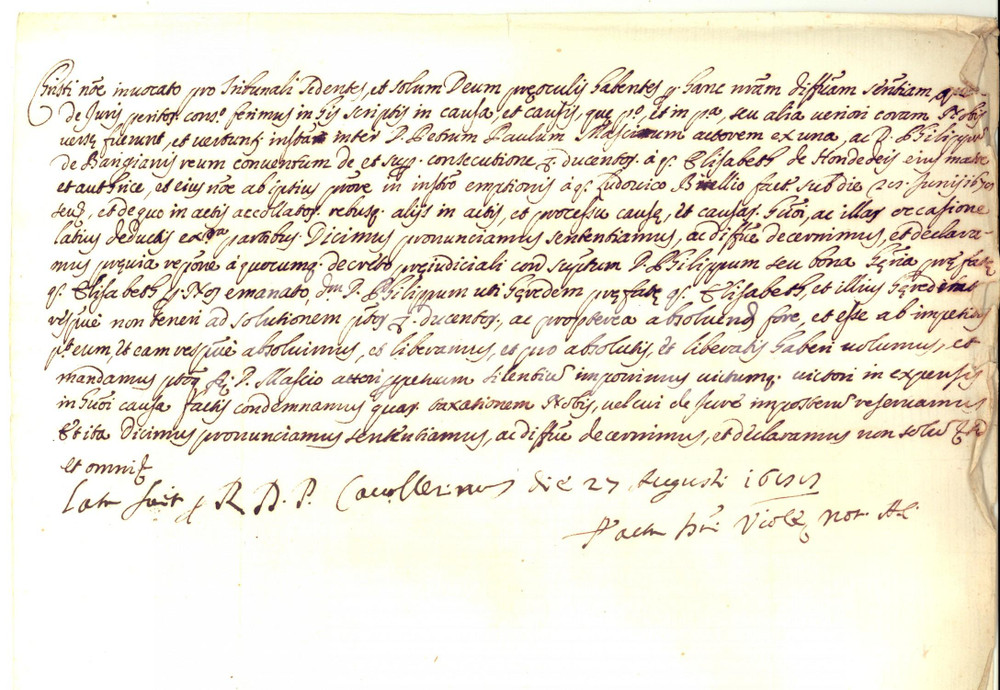 Christi nõe invocato pro Tribunali sedentes, et solum Deum pręoculis habentes p. hanc nr̃am diffam sen̄tiam
de Juris peritor. cons.º ferimus in his scriptis in causa, et causis, que pº, et in pª, seu alia veriori coram Nobis
versę fuerunt, et vertunt inter D. Petrum Paulum actorem ex una, ac D. Philippum
de Bangianis reum conventum de et sup. consecutione ducentor. à q. Elisabeth de Hondedeis eius matre
et auth.rice, et eius nõe ab ipsius in Instro emptionis à q. Ludovico fact. sub die Junij
seu, et de quo in actis accollator. rebusq. alijs in actis, et processu causę, et causar. hmõi, ac illar. occasione
latius deductis ex partibus. Dicimus pronunciamus sententiamus, ac diffũe decernimus, et declara-
mus pręvia à quocumq. decreto pręiudiciali con suptum D. Philippum seu bona
q. Elisabeth p. Nos emanato, D. Philippum uti hęredem pręfatę q. Elisabeth, et illius hęredem
non teneri ad solutionem ducentor., ac propterea absolvend. fore, et esse ab impetitis
p. eum, et eam absolvimus, et liberamus, et pro absolutis, et liberatis haberi volumus, et
mandamus D. Mascio actori ppetuum silentiũ imponimus victumq. victori in expensis
in hmõi causa factis condemnamus quar. taxationem Nobis, vel cui de Jure imposterũ reservamus
Et ita Dicimus pronunciamus sententiamus, ac diffũe decernimus, et declaramus non solũ
et omni
Lata fuit p R. D. P. Cavallerinus die 27 Augusti
not. AC